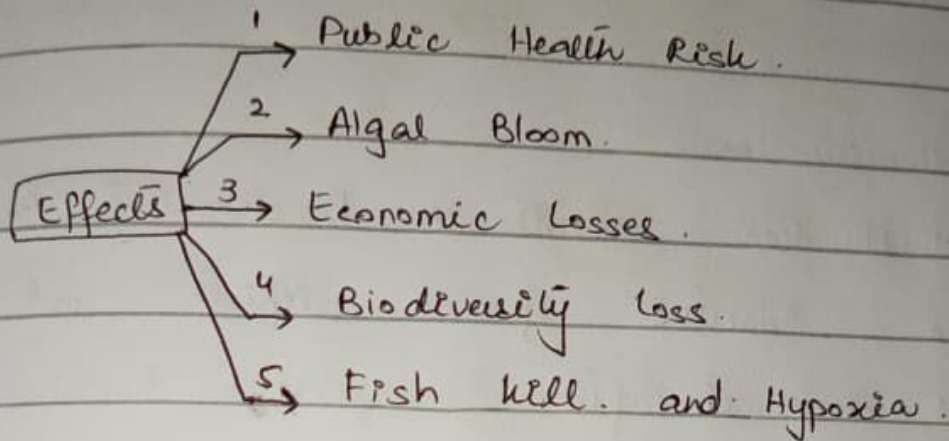 1 Public Health Risk.
2 Algal Bloom.
Effects 3 Economic Losses.
4 Biodiversity loss.
5 Fish kill. and Hypoxia.